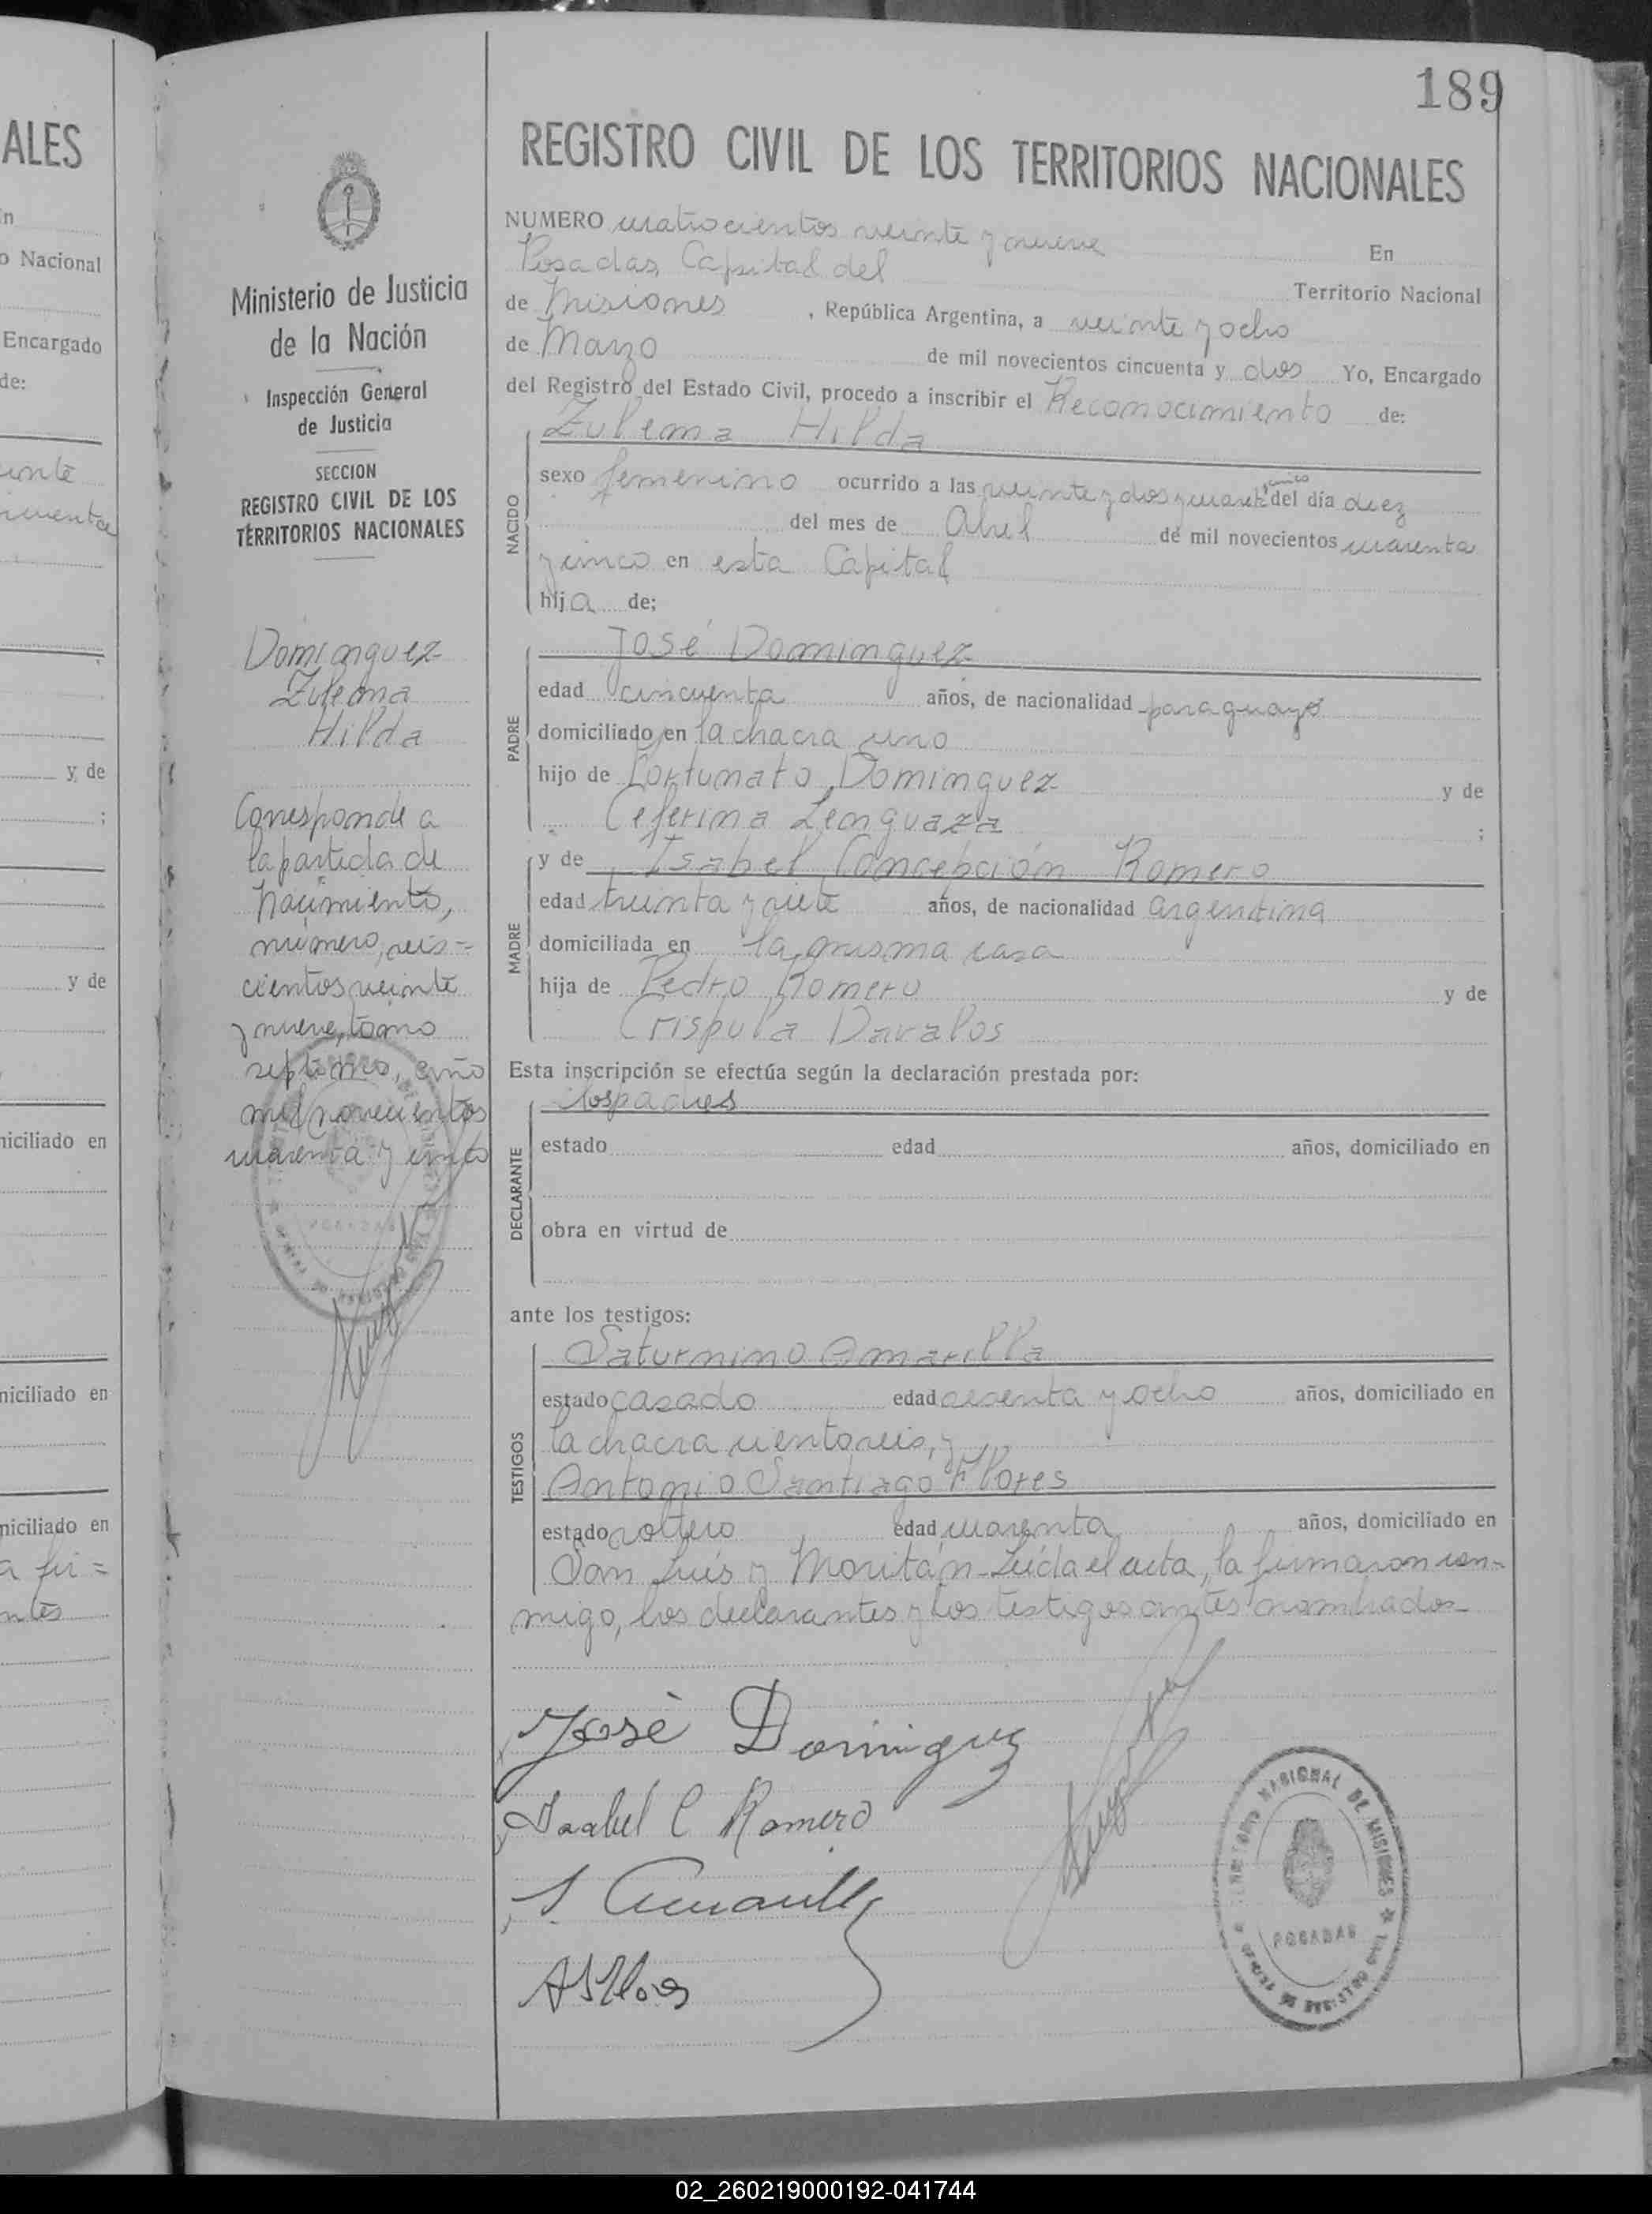 189
REGISTRO CIVIL DE LOS TERRITORIOS NACIONALES
NUMERO cuatrocientos veinte y nueve En
Posadas, Capital del Territorio Nacional
de Misiones, República Argentina, a veinte y ocho
de Marzo de mil novecientos cincuenta y dos Yo, Encargado
del Registro del Estado Civil, procedo a inscribir el Reconocimiento de:
NACIDO
Zulema Hilda
sexo femenino ocurrido a las veinte y dos y cuarenta y cinco del día diez
del mes de Abril de mil novecientos cuarenta
y cinco en esta Capital
hija de;
PADRE
José Dominguez
edad cincuenta años, de nacionalidad paraguayo
domiciliado en la chacra uno
hijo de Fortunato Dominguez y de
Ceferina Lenguaza ;
MADRE
y de Isabel Concepción Romero
edad treinta y siete años, de nacionalidad argentina
domiciliada en la misma casa
hija de Pedro Romero y de
Crispula Davalos
Esta inscripción se efectúa según la declaración prestada por:
DECLARANTE
los padres
estado edad años, domiciliado en
obra en virtud de
ante los testigos:
TESTIGOS
Saturnino Amarilla
estado casado edad sesenta y ocho años, domiciliado en
la chacra ciento seis, y
Antonio Santiago Flores
estado soltero edad cuarenta años, domiciliado en
San Luis y Moritán - Leída el acta, la firmaron con-
migo, los declarantes y los testigos antes nombrados
José Dominguez
Isabel C Romero
S. Amarilla
A S Flores
TERRITORIO NACIONAL DE MISIONES
POSADAS
Ministerio de Justicia
de la Nación
Inspección General
de Justicia
SECCION
REGISTRO CIVIL DE LOS
TERRITORIOS NACIONALES
Dominguez
Zulema
Hilda
Corresponde a
la partida de
Nacimiento,
número, seis=
cientos veinte
y nueve, tomo
septimo, año
mil novecientos
cuarenta y cinco
POSADAS
ALES
n
o Nacional
Encargado
de:
y de
;
y de
niciliado en
niciliado en
niciliado en
02_260219000192-041744